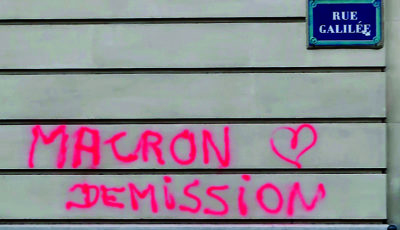 RUE
GALILÉE
MACRON ♡
DEMISSION